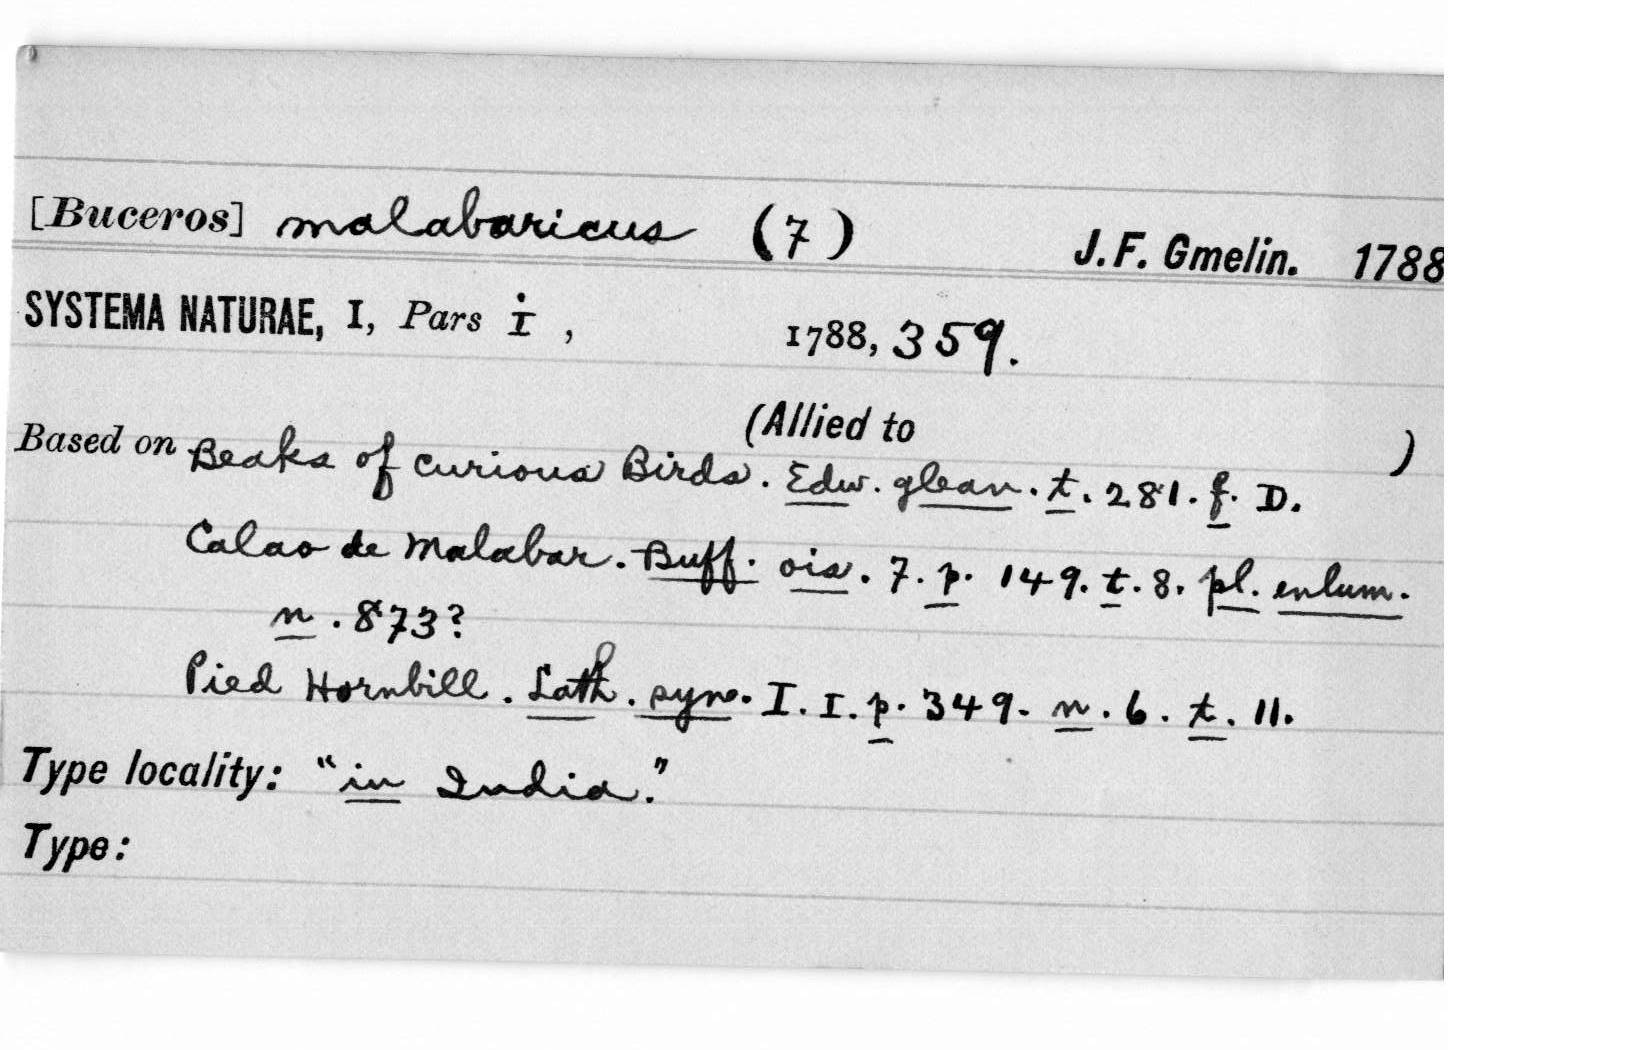 [Buceros] malabaricus (7) J.F. Gmelin. 1788
SYSTEMA NATURAE, I, Pars i, 1788, 359.
(Allied to )
Based on Beaks of curious Birds. Edw. glean. t. 281. f. D.
Calao de Malabar. Buff. ois. 7. p. 149. t. 8. pl. enlum.
n. 873?
Pied Hornbill. Lath. syn. I. I. p. 349. n. 6. t. 11.
Type locality: "in India."
Type: